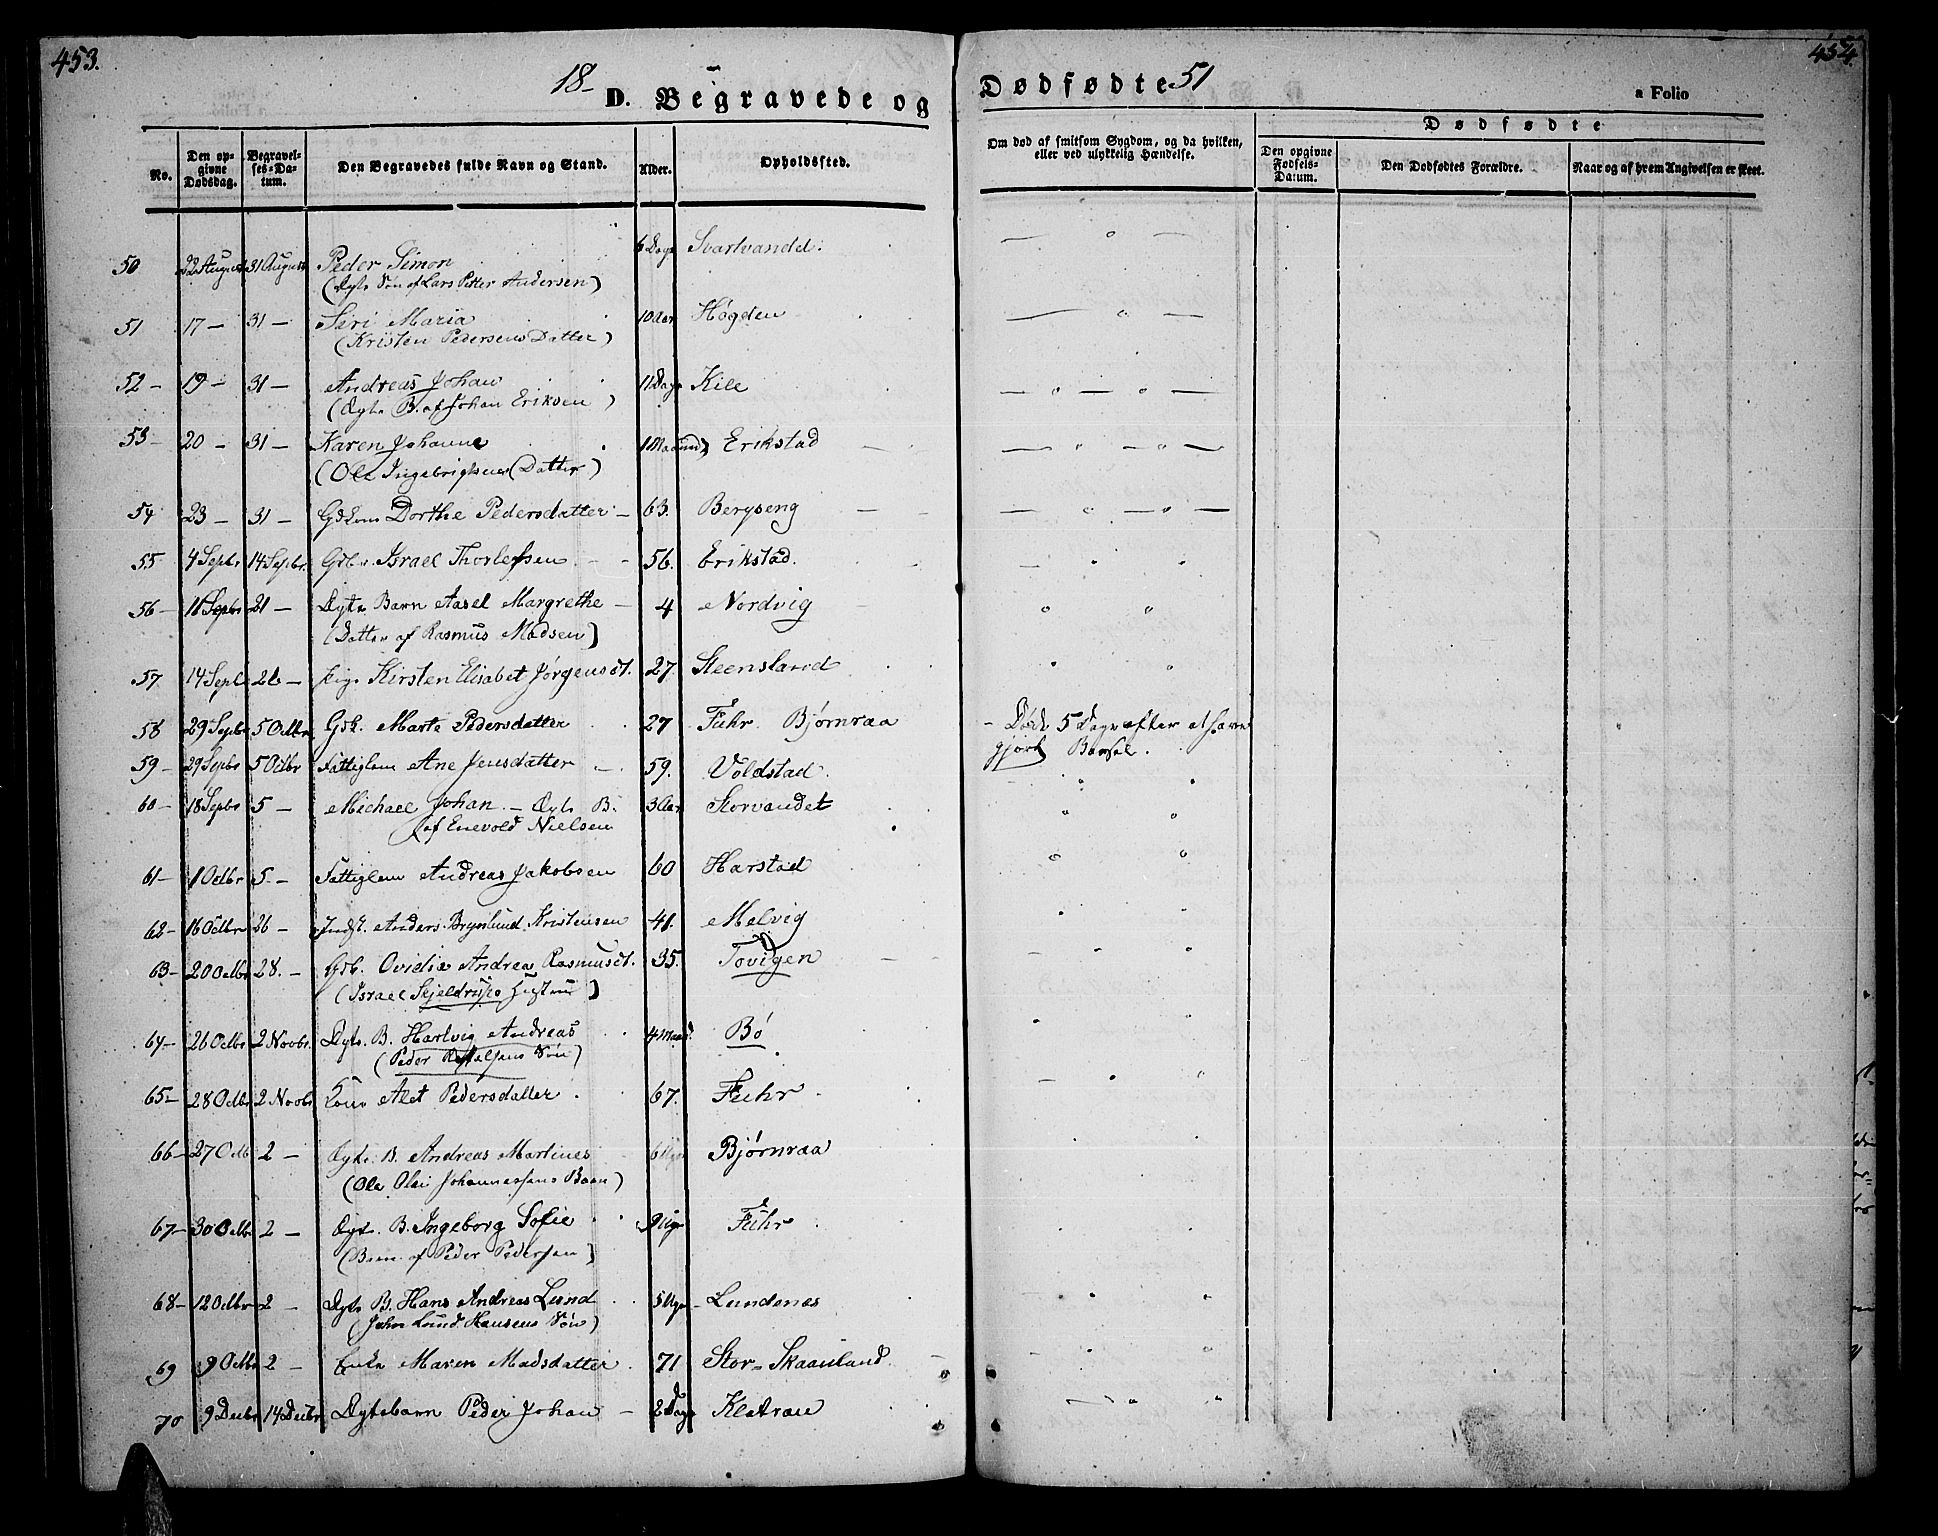 453.
454
18- D. Begravede og Dødfødte 51
a Folio
No.
Den opgivne Dødsdag.
Begravelses-Datum.
Den Begravedes fulde Navn og Stand.
Alder.
Opholdssted.
Om død af smitsom Sygdom, og da hvilken, eller ved ulykkelig Hændelse.
Dødfødte
Den opgivne Fødsels-Datum.
Den Dødfødtes Forældre.
Naar og af hvem Angivelsen er skeet.
50 22 August 31 August Peder Simon 6 Dage Svartvandd.
(Ægte Søn af Lars Petter Andersen)
51 17 – 31 – Siri Maria 10 Aar Høgden
(Kristen Pedersens Datter)
52 – 19 – 31 – Andreas Johan 11 Dage Kile
(Ægte B. af Johan Eriksen)
53 – 20 – 31 – Karen Johanne 1 Maaned Erikstad
(Ole Ingebrigtsens Datter)
54 23 – 31 – Dorthe Pedersdatter – 63. Bergseng
55 4 Septbr 14 Septbr. Israel Thorlefsen 56. Erikstad.
56 – 11 Septbr 21 – Ægte Barn Aasel Margrethe – 4 Nordvig
(Datter af Rasmus Madsen)
57 14 Septb Pige Kirsten Elisabet Jørgensdt. 27. Steensland
58 29 Septbr 5 Octbr Marte Pedersdatter 27 Fuhr Bjørnraa – Døde 5 Dage efter at have
gjort Barsel.
59 – 29 Septbr 5 Octbr Fattiglem Ane Jensdatter 59. Voldstad.
60 – 18 Septbr 5 – Michael Johan – Ægte B. 3 Aar Storvandet
(af Enevold Nielsen
61 – 1 Octbr 5 – Fattiglem Andreas Jakobsen 60 Harstad
62 – 16 Octbr 26 – Indst. Anders Kristensen 41. Melvig
63 – 20 Octbr 28. – Ovidia Andrea Rasmusdt. 35. Tovigen
(Israel Skjeldrups Hustru)
64 – 26 Octbr 2 Novbr. Ægte B. Hartvig Andreas 4 Maan. Bø
(Peder Søn)
65 – 28 Octbr 2 Novbr Alet Pedersdatter 67. Fuhr
66 – 27 Octb 2 – Ægte B. Andreas Martines 6 Uger Bjørnraa
(Ole Olai Johannessens Barn)
67 – 30 Octbr 2 – Ægte B. Ingeborg Sofie 9 Uger Fuhr
(Barn af Peder Pedersen)
68 – 12 Octbr 2 – Ægte B. Hans Andreas Lund 5 Uger Lundenes
(John Lund Hansens Søn)
69 9 Octbr 2 – Enke Maren Madsdatter 71 Stor-Skaanland
70 9 Decbr 14 Decbr Ægtebarn Peder Johan – 2 Dage